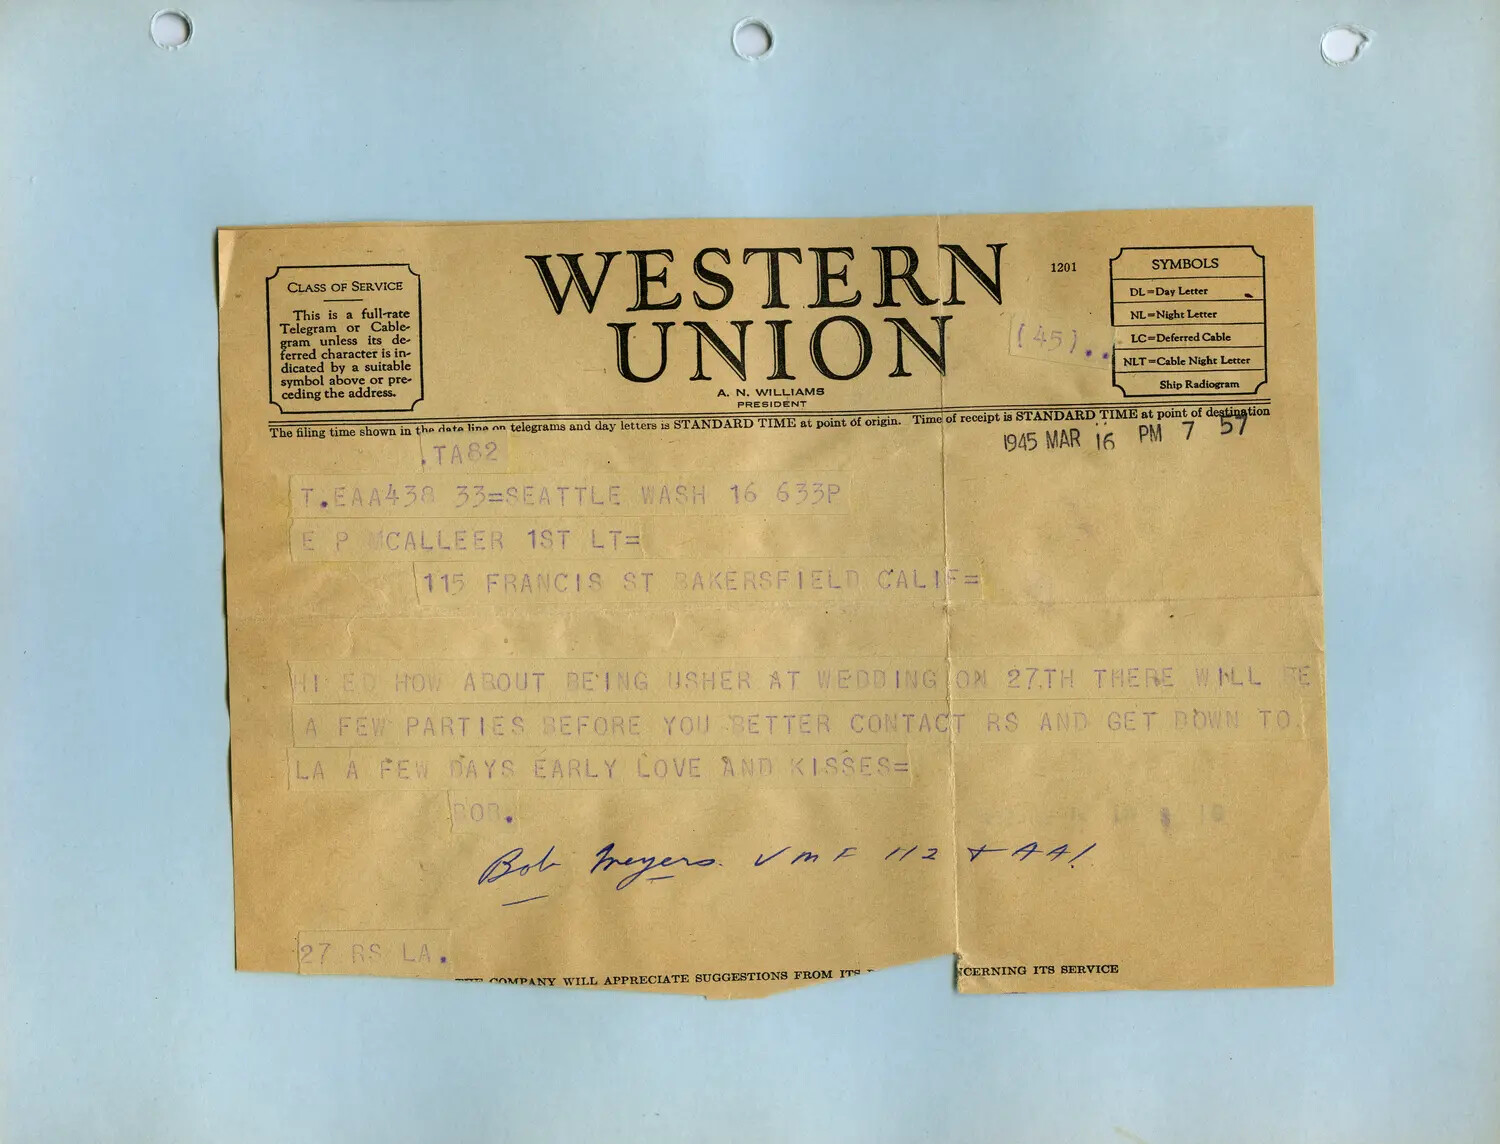 CLASS OF SERVICE
This is a full-rate
Telegram or Cable-
gram unless its de-
ferred character is in-
dicated by a suitable
symbol above or pre-
ceding the address.
WESTERN
UNION
A. N. WILLIAMS
PRESIDENT
1201
(45)..
SYMBOLS
DL=Day Letter
NL=Night Letter
LC=Deferred Cable
NLT=Cable Night Letter
Ship Radiogram
The filing time shown in the date line on telegrams and day letters is STANDARD TIME at point of origin. Time of receipt is STANDARD TIME at point of destination
1945 MAR 16 PM 7 57
.TA82
T.EAA438 33=SEATTLE WASH 16 633P
E P MCALLEER 1ST LT=
115 FRANCIS ST BAKERSFIELD CALIF=
HI ED HOW ABOUT BEING USHER AT WEDDING ON 27TH THERE WILL BE
A FEW PARTIES BEFORE YOU BETTER CONTACT RS AND GET DOWN TO
LA A FEW DAYS EARLY LOVE AND KISSES=
BOB.
Bob Meyers. VMF 112 + AA!
27 RS LA.
THE COMPANY WILL APPRECIATE SUGGESTIONS FROM ITS CERNING ITS SERVICE